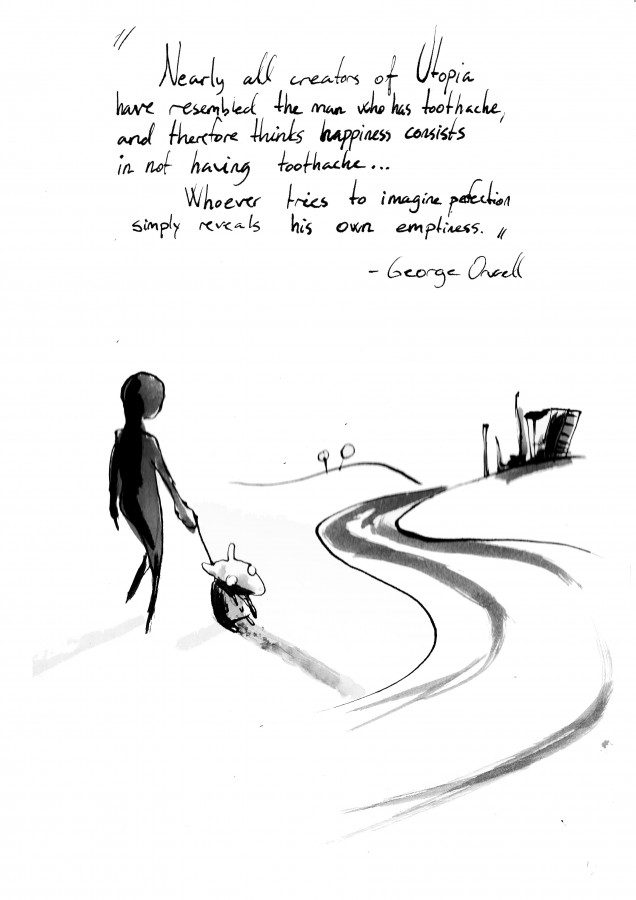 "
Nearly all creators of Utopia
have resembled the man who has toothache,
and therefore thinks happiness consists
in not having toothache...
Whoever tries to imagine pefection
simply reveals his own emptiness. "
- George Orwell